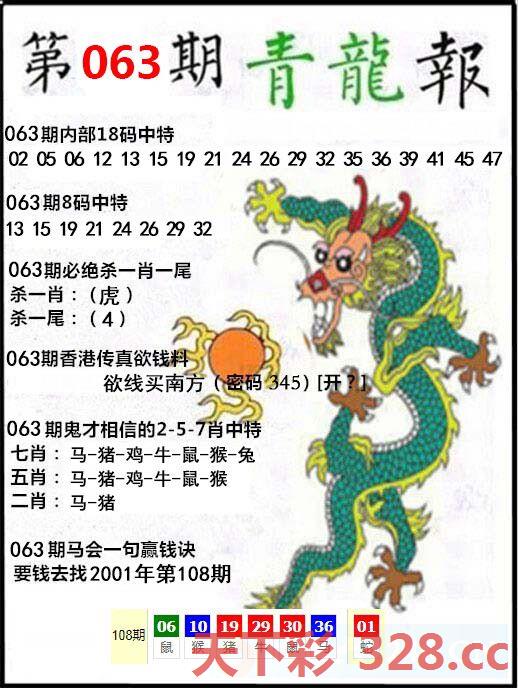 第063期青龍報
063期内部18码中特
02 05 06 12 13 15 19 21 24 26 29 32 35 36 39 41 45 47
063期8码中特
13 15 19 21 24 26 29 32
063期必绝杀一肖一尾
杀一肖：（虎）
杀一尾：（4）
063期香港传真欲钱料
欲线买南方（密码 345）[开？]
063期鬼才相信的2-5-7肖中特
七肖：马-猪-鸡-牛-鼠-猴-兔
五肖：马-猪-鸡-牛-鼠-猴
二肖：马-猪
063期马会一句赢钱诀
要钱去找2001年第108期
108期 06 10 19 29 30 36 01
鼠 猴 猪 牛 鼠 马 蛇
天下彩 328.cc